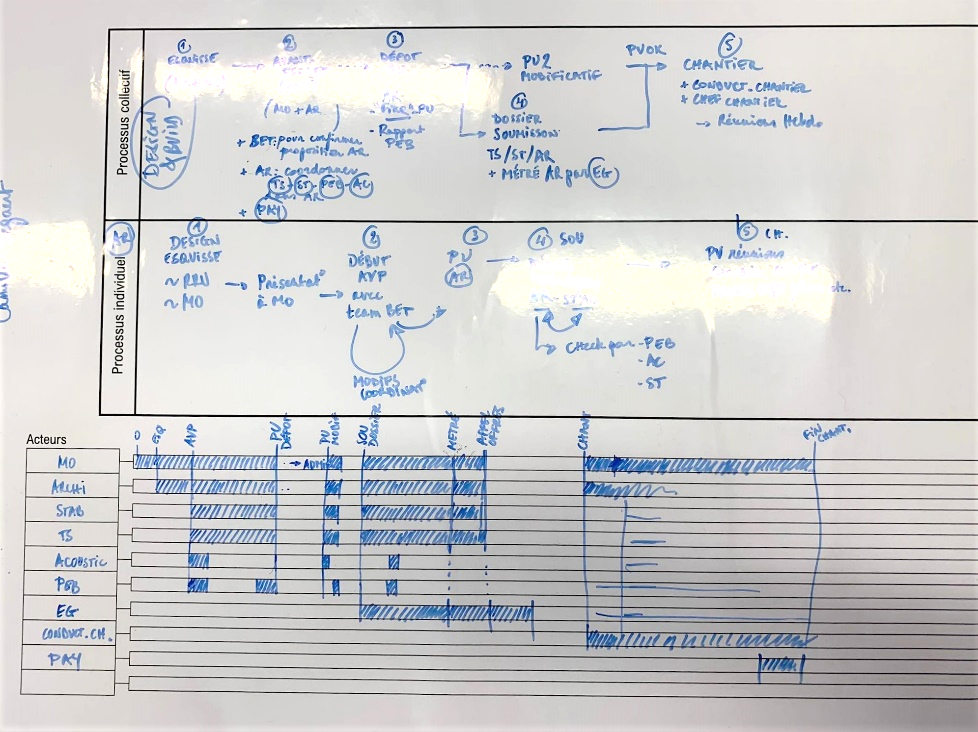 Processus collectif
DESIGN
& BUILD
①
ESQUISSE
②
(MO + AR)
+ BET: pour confirmer
proposition AR
+ AR: coordonner
TS - ST - PEB - AC
+ PAY
③
DÉPOT
- Rapport
PEB
PU2
MODIFICATIF
④
DOSSIER
SOUMISSON
TS/ST/AR
+ MÉTRÉ AR par EG
PVOK
⑤
CHANTIER
+ CONDUCT. CHANTIER
+ CHEF CHANTIER
→ Réunions Hebdo
Processus individuel
AR
①
DESIGN
ESQUISSE
~ MO
→ Présentat°
à MO
②
DÉBUT
AVP
→ avec
team BET
MODIFS
COORDINAT°
③
PU
AR
④ SOU
→ Check par - PEB
- AC
- ST
⑤ CH.
PV réunions
Acteurs
0
ESQ
AVP
PU
DÉPOT
PU
MODIF
SOU
DOSSIER
METRÉ
APPEL
OFFRES
CHANT
FIN
CHANT.
MO
→ ADM
ARCHI
STAB
TS
ACOUSTIC
PEB
EG
CONDUCT. CH.
PAY